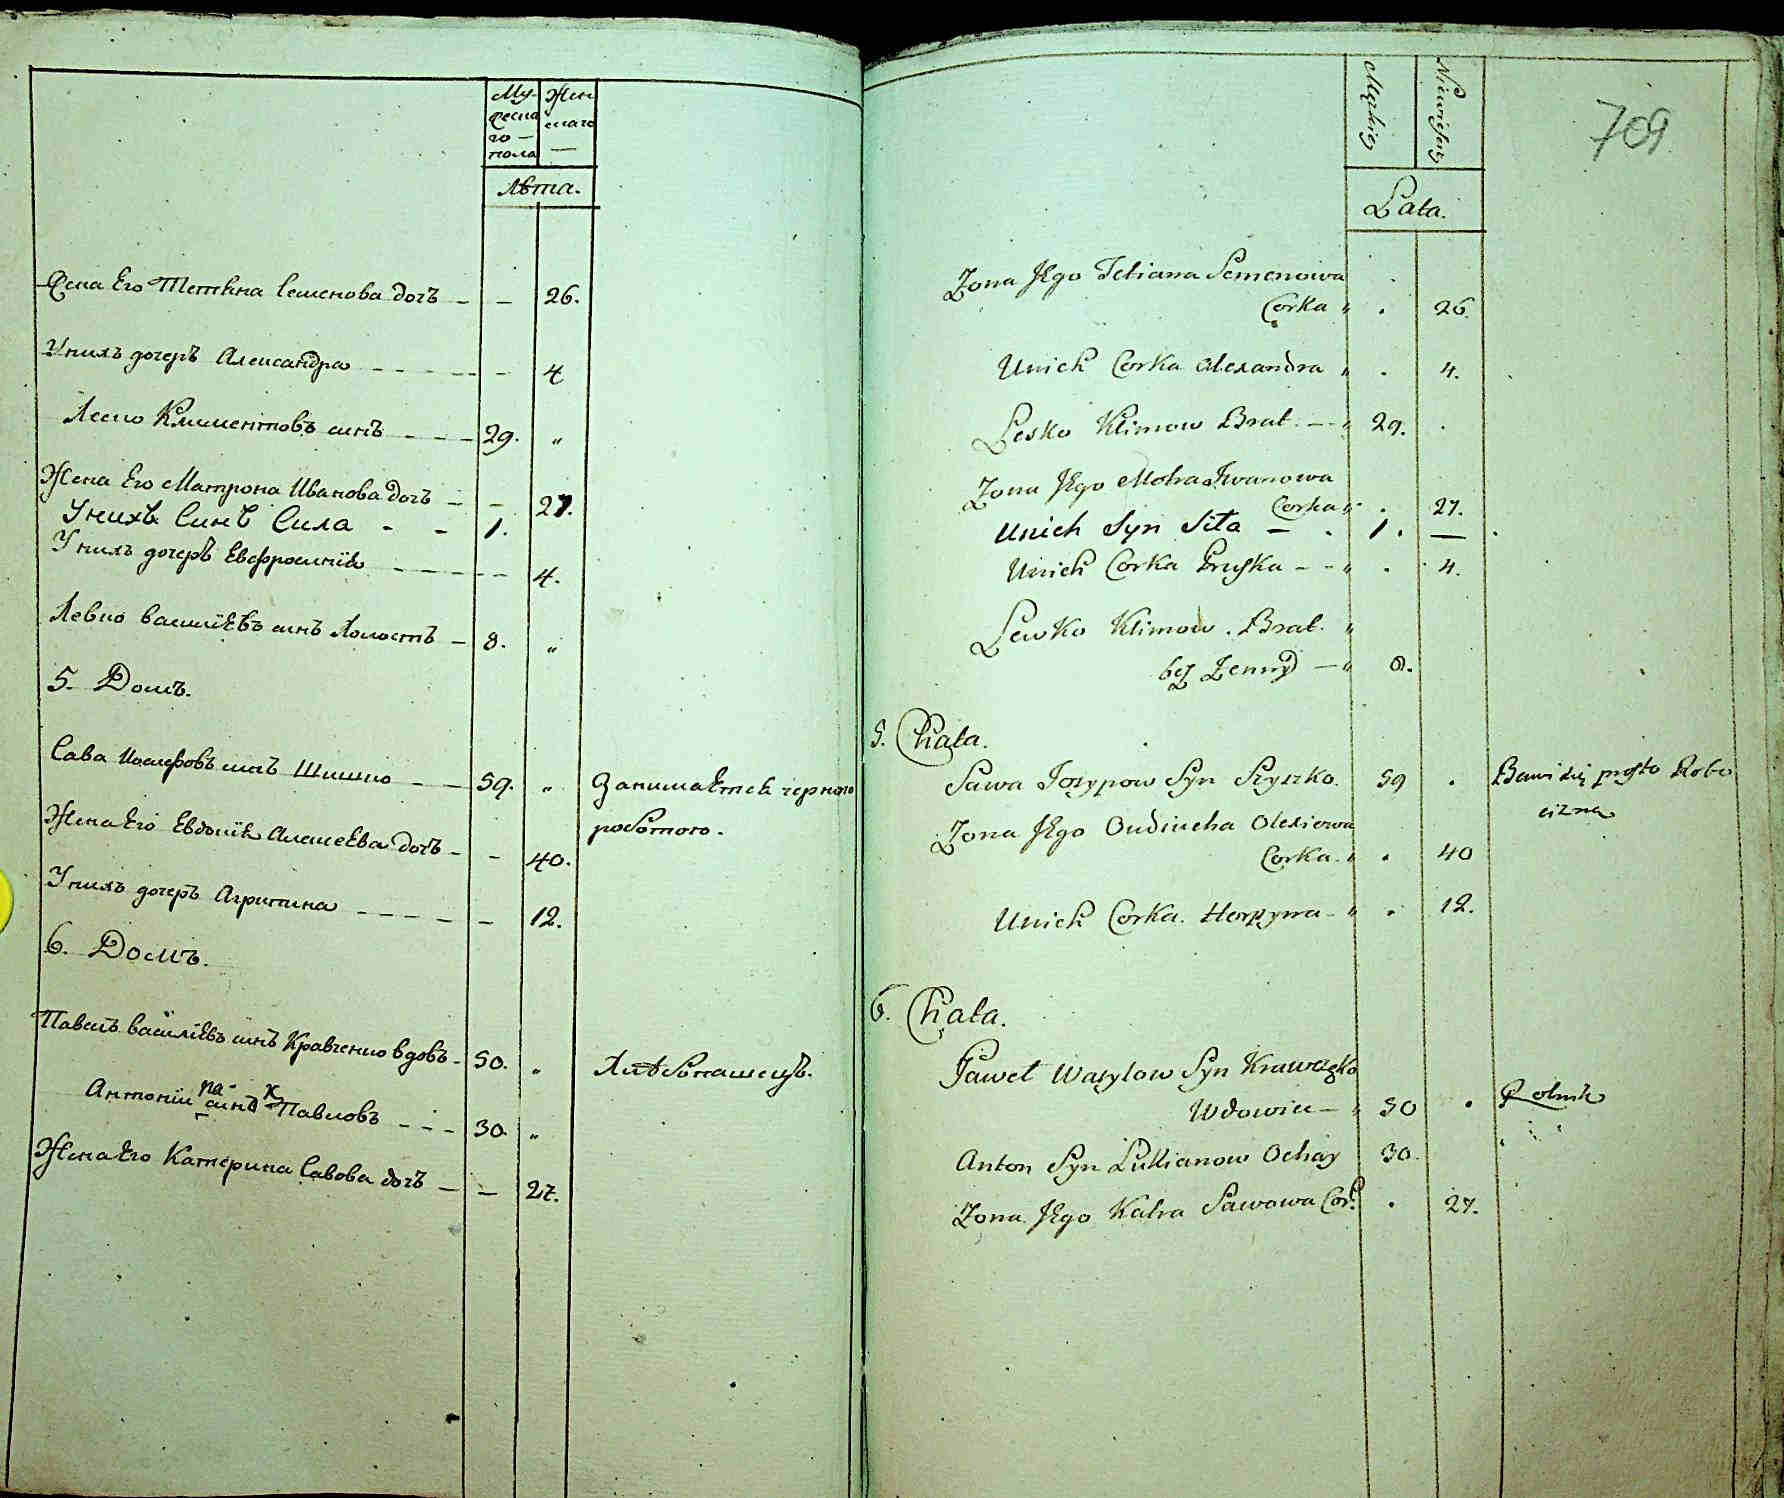 Му- Жен
жеска скаго
го —
пола —
Лѣта.
Жена Его Тетяна Семенова дочъ — — 26.
Унихъ дочеръ Александра - - - - - - 4
Леско Климентовъ синъ - - - - 29. „
Жена Его Матрона Иванова дочъ — — 27.
Унихъ Синъ Сила - - 1.
Унихъ дочеръ Евфросинія - - - - - - 4.
Левко василіевъ синъ Холостъ — 8. „
5. Домъ.
Сава Иосифовъ синъ Шишко — — 59. „ Занимается чорною
работою.
Жена Его Евдокія Алексѣева дочъ - - 40.
Унихъ дочеръ Агрипина - - - - - - 12.
6. Домъ.
Павелъ василіевъ синъ Кравченко вдовъ - 50. „ Хлѣбопашецъ.
па- к
Антоній синъ Павловъ - - - 30. „
Жена Его Катерина Савова дочъ — — 27.
Męzkiey Niewiesciey
709
Lata.
Zona JEgo Tetiana Semenowa
Corka „ . 26.
Unich Corka Alexandra „ . 4.
Lesko Klimow Brat. — „ 29. .
Zona JEgo Motra Iwanowa
Corka „ . 27.
Unich Syn Siła — . 1. —
Unich Corka Pruska - - „ . 4.
Lewko Klimow. Brat. „
bez Zenny — „ 8.
5. Chata.
Sawa Jozypow Syn Szyszko. 59 . Bawi się prosto Robo
cizna
Zona JEgo Oudiucha Olexiowa
Corka. „ . 40
Unich Corka. Horpyna - „ . 12.
6. Chata.
Paweł Wasylow Syn Krawczęko
Wdowiec — „ 50 . Rolnik
Anton Syn Łukianow Ochay 30.
Zona JEgo Katra Sawowa Cor: . 27.